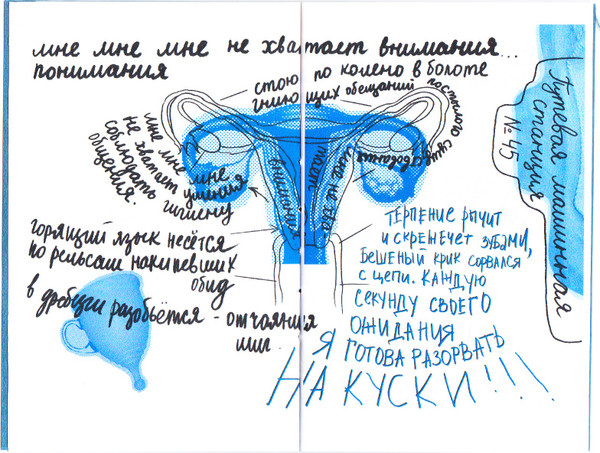 мне мне мне не хватает внимания...
понимания
стою по колено в болоте
гниющих обещаний
мне мне мне
не хватает умения
соблюдать гигиену
общения.
мне не хва
тает
внимания
горящий язык несётся
по рельсам накипевших
обид
в дребезги разобьётся - отчаяния
миг.
ТЕРПЕНИЕ РЫЧИТ
И СКРЕЖЕЧЕТ ЗУБАМИ,
БЕШЕНЫЙ КРИК СОРВАЛСЯ
С ЦЕПИ. КАЖДУЮ
СЕКУНДУ СВОЕГО
ОЖИДАНИЯ
Я ГОТОВА РАЗОРВАТЬ
НА КУСКИ!!!
Путевая машинная
станция
№45